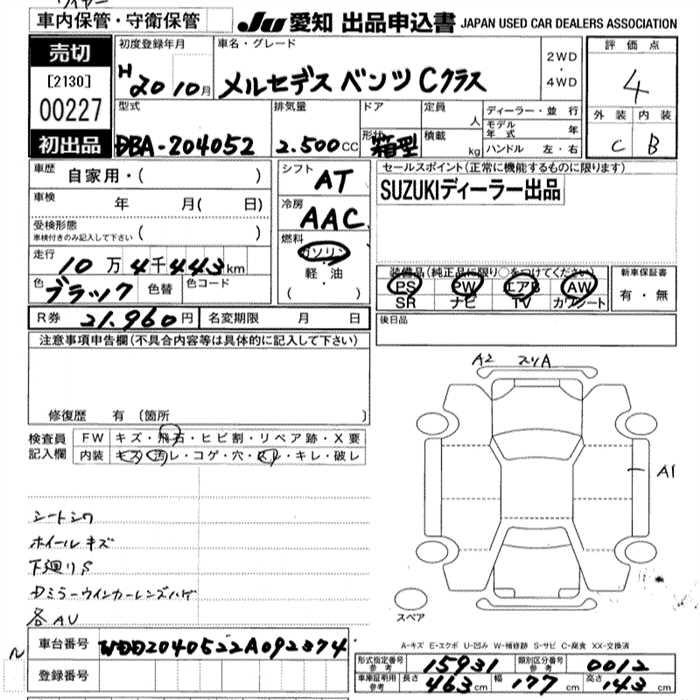 車内保管・守衛保管
JU 愛知 出品申込書 JAPAN USED CAR DEALERS ASSOCIATION
売切
[2130]
00227
初出品
初度登録年月 車名・グレード 2WD・4WD 評価点
H 20 10月 メルセデス ベンツ Cクラス 4
型式 排気量 ドア 定員 人 ディーラー・並行 外装 内装
DBA-204052 2.500cc 形状 箱型 積載 kg モデル年式 年 C B
ハンドル 左・右
車歴 自家用・( ) シフト AT セールスポイント(正常に機能するものに限ります)
車検 年 月( 日) 冷房 AAC SUZUKIディーラー出品
受検形態 ( )
車検付きのみ記入して下さい
燃料 ガソリン
走行 10万4千443km 軽・油
色 ブラック 色替 色コード ( ・ )
装備品(純正品に限り○をつけてください) 新車保証書
PS PW エアB AW 有・無
SR ナビ TV カワシート
R券 21.960円 名変期限 月 日 後日品
注意事項申告欄(不具合内容等は具体的に記入して下さい)
修復歴 有 (箇所 )
検査員 FW キズ・飛石・ヒビ割・リペア跡・X要
記入欄 内装 キズ・汚レ・コゲ・穴・スレ・キレ・破レ
A2 スリA
A1
シートシワ
ホイールキズ
下廻りS
ドミラーウインカーレンズハゲ
各AU
スペア
A-キズ E-エクボ U-凹み W-補修跡 S-サビ C-腐食 XX-交換済
車台番号 WDD2040522A092374
登録番号
形式指定番号 参考 15931 類別区分番号 参考 0012
車庫証明用 参考 長さ 463cm 幅 177cm 高さ 143cm